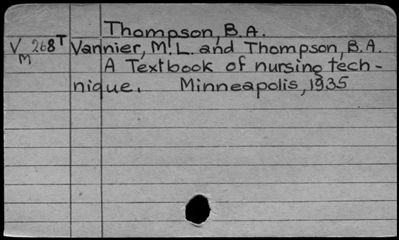 Thompson, B.A.
V 268T Vannier, M.L. and Thompson, B.A.
M A Textbook of nursing tech-
nique. Minneapolis, 1935